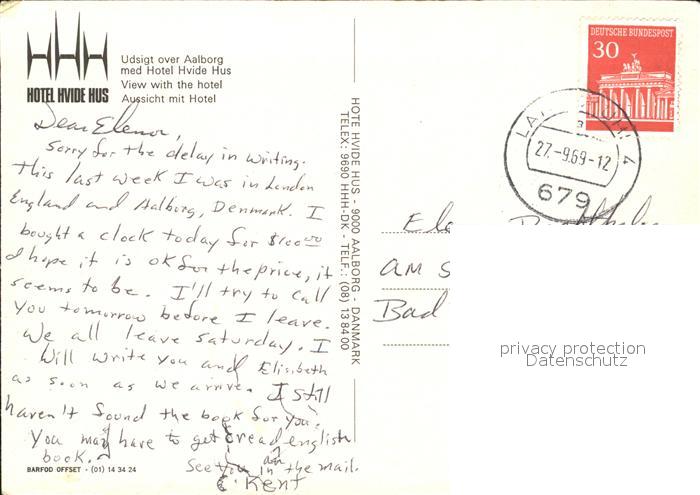 HHH
HOTEL HVIDE HUS
Udsigt over Aalborg
med Hotel Hvide Hus
View with the hotel
Aussicht mit Hotel
Dear Elenor,
Sorry for the delay in writing.
This last week I was in London
England and Aalborg, Denmark. I
bought a clock today for $100.00
I hope it is OK for the price, it
seems to be. I'll try to call
you tomorrow before I leave.
We all leave saturday. I
Will write you and Elisibeth
as soon as we arrive. I still
haven't found the book for you.
You may have to get read english
book.
See you in the mail.
C. Kent
BARFOD OFFSET - (01) 14 34 24
HOTE HVIDE HUS - 9000 AALBORG - DANMARK
TELEX: 9690 HHH-DK - TELF.: (08) 13 84 00
DEUTSCHE BUNDESPOST
30
27.-9.69-12
679
am S
Bad
privacy protection
Datenschutz